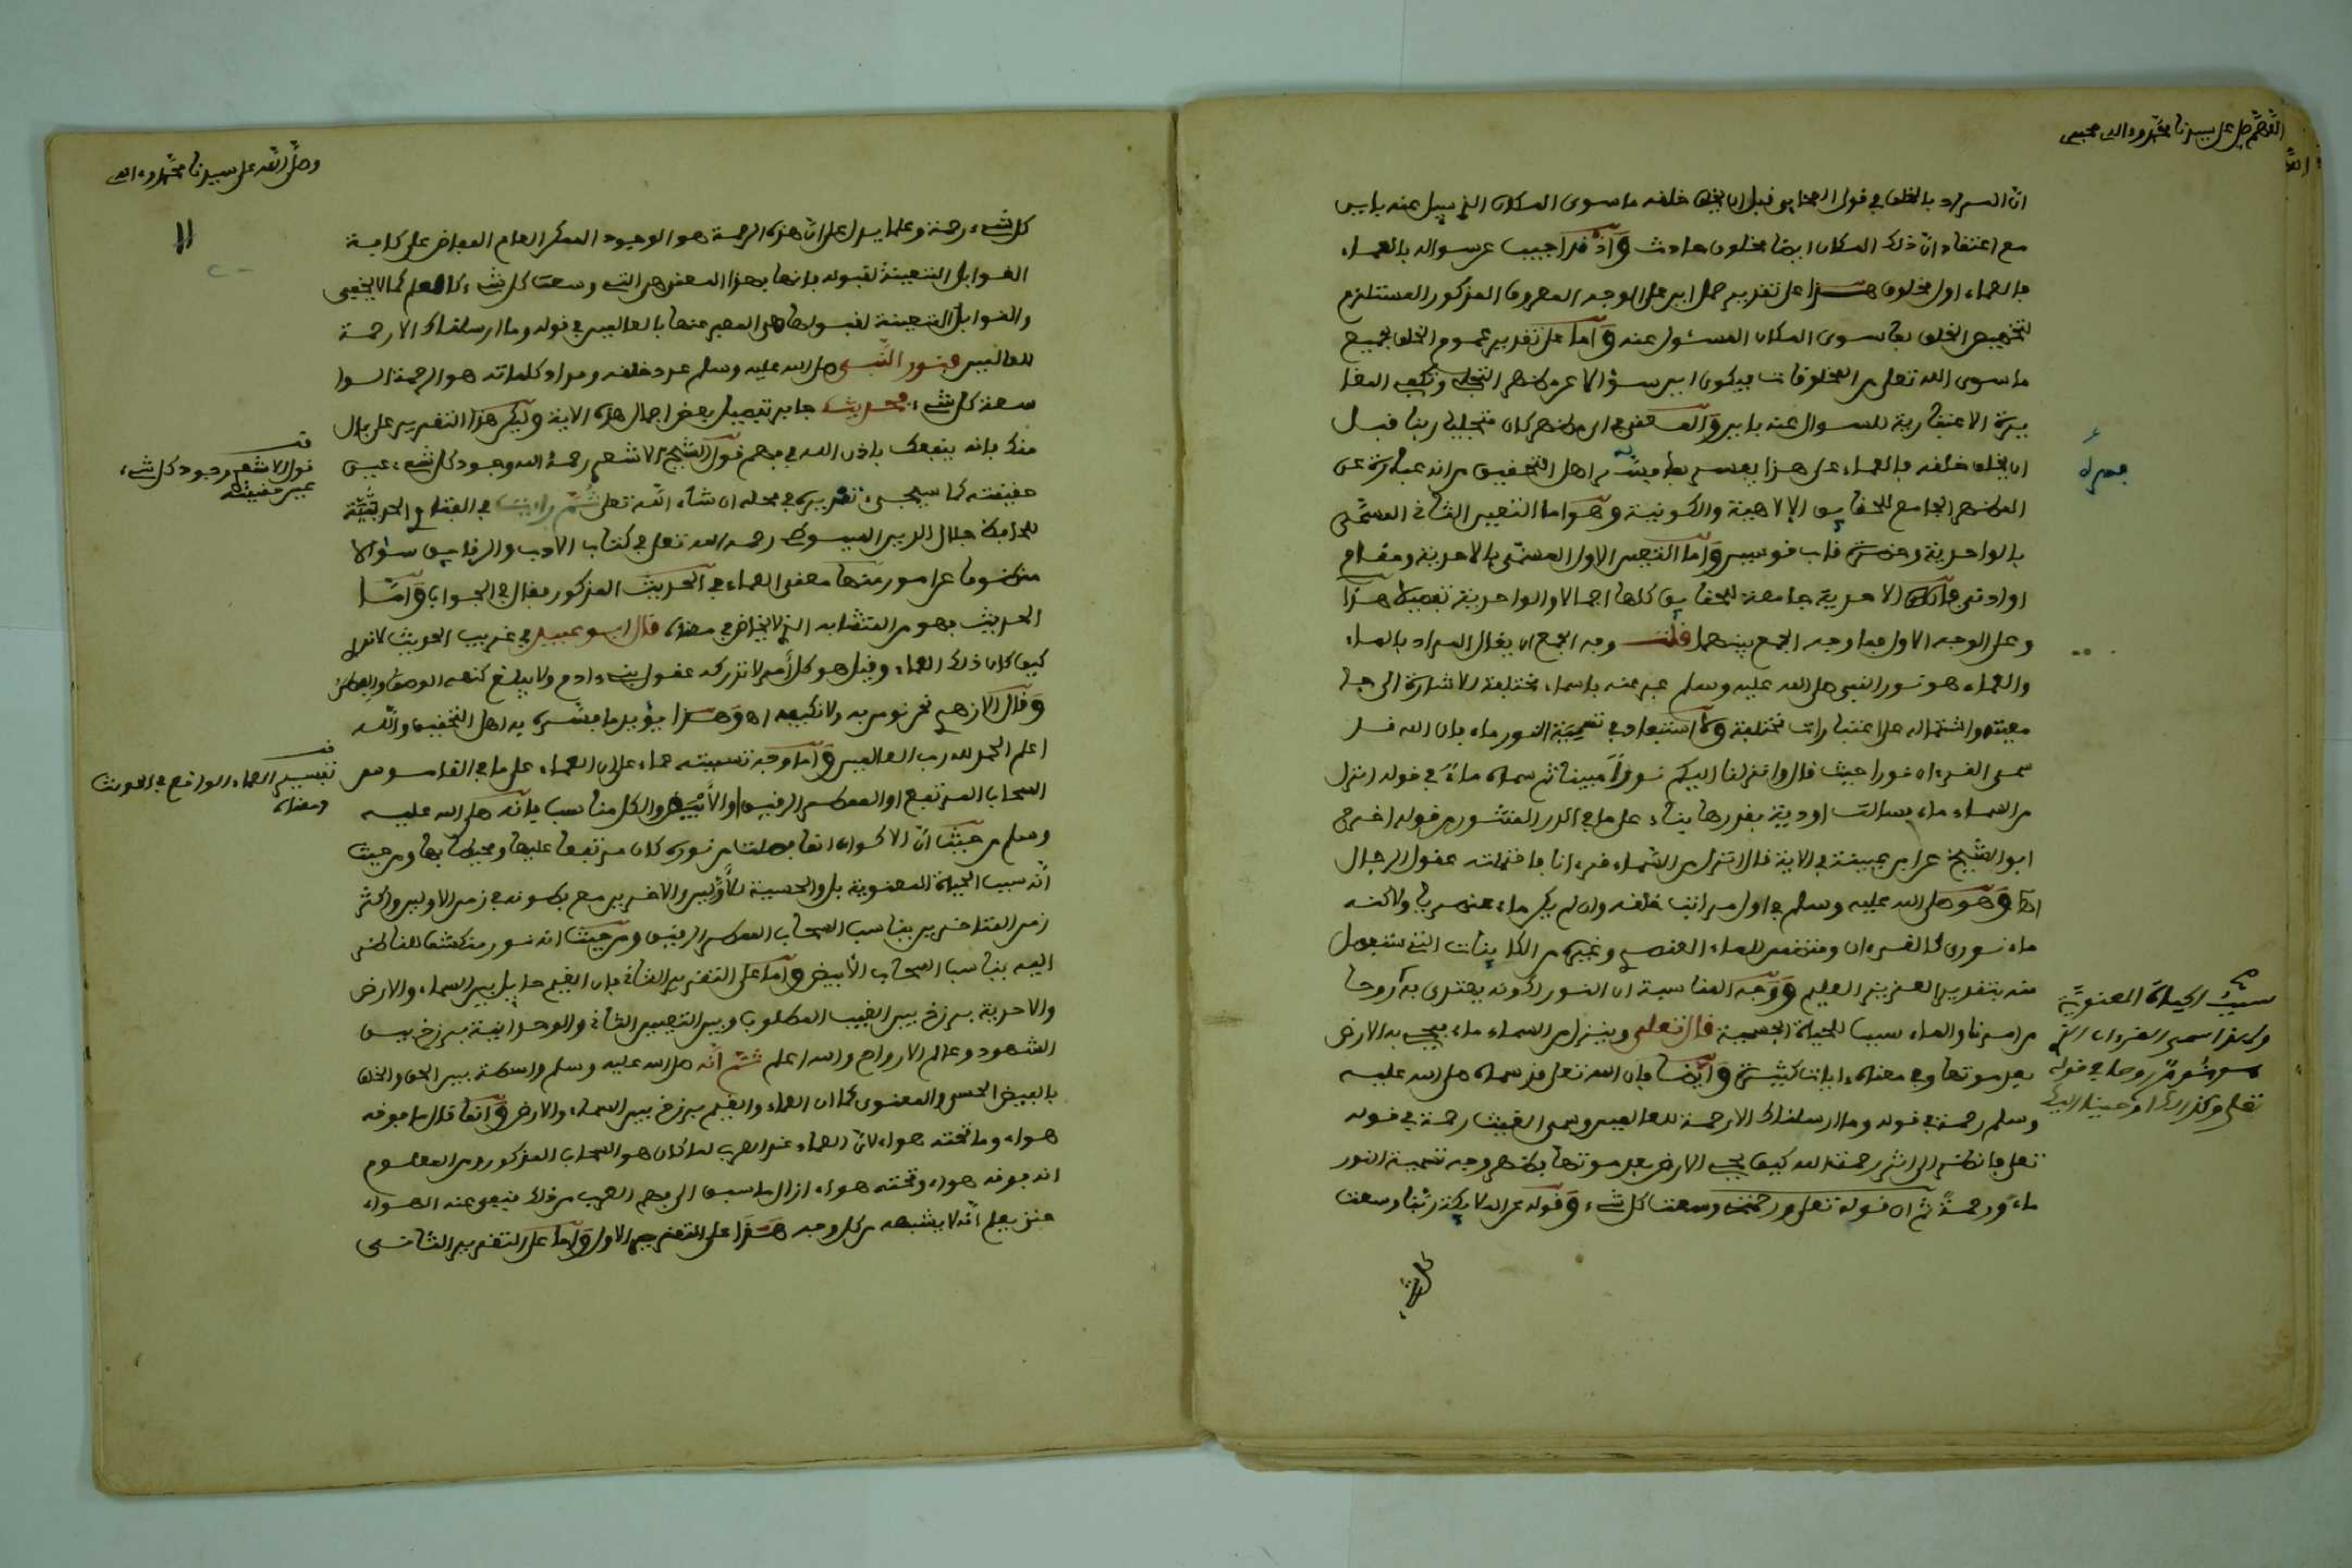 اللهم صل على سيدنا محمد وءاله وصحبه
ان المراد بالخلق في قول الصحابي قبل ان يخلق خلقه ما سوى المكان الذي سئل عنه باين
مع اعتقاد ان ذلك المكان ايضا مخلوق حادث واذ قد اجيب عن سواله بالعماء
فالعماء اول مخلوق هذا على تقدير حمل اين على الوجه المعروف المذكور المستلزم
لتخصيص الخلق بما سوى المكان المسئول عنه واما على تقدير عموم الخلق لجميع
ما سوى الله تعلى من المخلوقات فيكون اين سؤالا عن مظهر التجلي
الاعتبارية للسوال عنه باين والمعنى في اي مظهر كان متجليا ربنا قبل
ان يخلق خلقه فالعماء على هذا يفسر بما فسره به اهل التحقيق من انه عبارة عن
المظهر الجامع للحقايق الالاهية والكونية وهو اما التعين الثاني المسمى
بالواحدية وحضرة قاب قوسين واما التعين الاول المسمى بالاحدية ومقام
او ادنى فان الاحدية جامعة للحقايق كلها اجمالا والواحدية تفصيلا هذا
وعلى الوجه الاول فما وجه الجمع بينهما قلت وجه الجمع ان يقال المراد بالماء
والعماء هو نور النبي صلى الله عليه وسلم عبر عنه باسماء مختلفة للاشارة الى جا
معيته واشتماله على اعتبارات مختلفة ولا استبعاد في تسمية النور ماء فان الله قد
سمى القرءان نورا حيث قال وانزلنا اليكم نورا مبينا ثم سماه ماء في قوله انزل
من السماء ماء فسالت اودية بقدرها بناء على ما في الدر المنثور من قوله اخرج
ابو الشيخ عن ابن عيينة في الاية قال انزل من السماء قرءانا فاحتملته عقول الرجال
اه وهو صلى الله عليه وسلم في اول مراتب خلقه وان لم يكن ماء عنصريا ولاكنه
ماء نوري كالقرءان ومتضمن للماء العنصري وغيره من الكاينات التي ستفصل
منه بتقدير العزيز العليم ووجه المناسبة ان النور لكونه يهتدى به روحا
من امرنا والماء سبب للحياة الجسمية قال تعلى وينزل من السماء ماء فيحيي به الارض
بعد موتها وفي معناه ءايات كثيرة وايضا فان الله تعلى قد سماه صلى الله عليه
وسلم رحمة في قوله وما ارسلناك الا رحمة للعالمين وسمى الغيث رحمة في قوله
تعلى فانظر الى اثر رحمة الله كيف يحيي الارض بعد موتها فظهر وجه تسمية النور
ماء ورحمة ثم ان قوله تعلى ورحمتي وسعت كل شيء وقوله عن الملائكة ربنا وسعت
كل شيء
سبب الحياة المعنوية
ولهذا سمى القرءان الذي
هو نور روحا في قوله
تعلى وكذلك اوحينا اليك
وصلى الله على سيدنا محمد وءاله
11
كل شيء رحمة وعلما يدل على ان هذه الرحمة هو الوجود العام المفاض على كافة
القوابل المتعينة لقبوله فانها بهذا المعنى هي التي وسعت كل شيء كالعلم كما لا يخفى
والقوابل المتعينة لقبولها هي المعبر عنها بالعالمين في قوله وما ارسلناك الا رحمة
للعالمين فنور النبي صلى الله عليه وسلم عدد خلقه ومداد كلماته هو الرحمة الوا
سعة كل شيء فحديث جابر تفصيل بعض اجمال هذه الاية وليكن هذا التقرير على بال
منك فانه ينفعك باذن الله في فهم قول الشيخ الاشعري رحمه الله وجود كل شيء عين
حقيقته كما سيجيء تقريره في محله ان شاء الله تعلى ثم رايت في الفتاوي الحديثية
للحافظ جلال الدين السيوطي رحمه الله تعلى في كتاب الادب والرقايق سؤالا
منظوما عن امور منها معنى العماء في الحديث المذكور فقال في الجواب واما
الحديث فهو من المتشابه الذي لا يخاض في معناه قال ابو عبيد في غريب الحديث لا ندري
كيف كان ذلك العماء وقيل هو كل امر لا تدركه عقول بني ءادم ولا يبلغ كنهه الوصف والفطن
وقال الازهري نحن نومن به ولا نكيفه اه وهذا يؤيد ما فسره به اهل التحقيق والله
اعلم الحمد لله رب العالمين واما وجه تسميته عماء على ان العماء على ما في القاموس
السحاب المرتفع او الممطر الرقيق او الابيض والكل مناسب فانه صلى الله عليه
وسلم من حيث ان الاكوان انما فصلت من نوره كان مرتفعا عليها ومحيطا بها ومن حيث
انه سبب الحياة المعنوية بل والحسية للاولين والاخرين مع بطونه في زمن الاولين واكثر
زمن المتاخرين يناسب السحاب الممطر الرقيق ومن حيث انه نور منكشف للناظر
اليه يناسب السحاب الابيض واما على التقرير الثاني فان الغيم حايل بين السماء والارض
والاحدية برزخ بين الغيب المطلوب وبين التعين الثاني والوحدانية برزخ بين
الشهود وعالم الارواح والله اعلم ثم انه صلى الله عليه وسلم واسطة بين الحق والخلق
بالفيض الحسي والمعنوي كما ان العماء والغيم برزخ بين السماء والارض وانما قال ما فوقه
هواء وما تحته هواء لان العماء عند العرب لما كان هو السحاب المذكور ومن المعلوم
انه فوقه هواء وتحته هواء ازال ما سبق الى فهم العرب من ذلك فنفى عنه الهواء
حتى يعلم انه لا يشبهه من كل وجه هذا على التقرير الاول واما على التقرير الثاني
قف
قول الاشعري وجود كل شيء
عين حقيقته
قف
تفسير العماء الواقع في الحديث
ومعناه